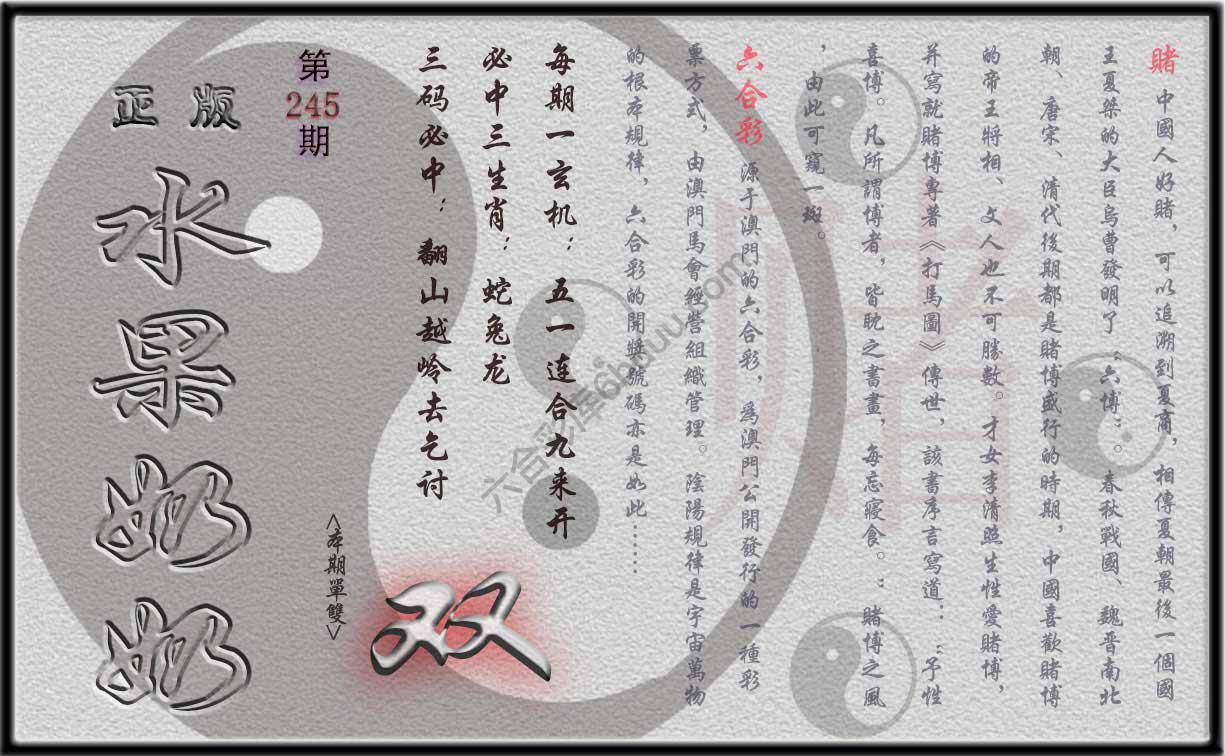 賭 中國人好賭，可以追溯到夏商，相傳夏朝最後一個國
王夏桀的大臣烏曹發明了“六博”。春秋戰國、魏晋南北
朝、唐宋、清代後期都是賭博盛行的時期，中國喜歡賭博
的帝王將相、文人也不可勝數。才女李清照生性愛賭博，
并寫就賭博專著《打馬圖》傳世，該書序言寫道：“予性
喜博。凡所謂博者，皆耽之書畫，每忘寢食。”賭博之風
，由此可窺一斑。
六合彩 源于澳門的六合彩，爲澳門公開發行的一種彩
票方式，由澳門馬會經營組織管理。陰陽規律是宇宙萬物
的根本規律，六合彩的開獎號碼亦是如此……
每期一玄机：五一连合九来开
必中三生肖：蛇兔龙
三码必中：翻山越岭去乞讨
第
245
期
<本期單雙>
双
正版
水果奶奶
賭
六合彩库6hduu.com